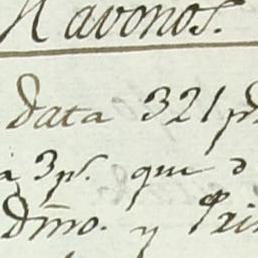 Navonos.
data 321 p
a 3 p.s que d
Dmo. y Pri